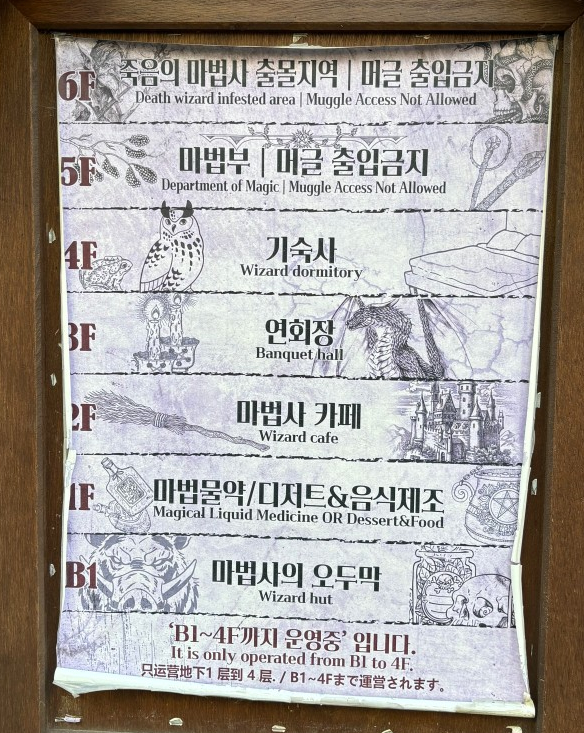 6F 죽음의 마법사 출몰지역 | 머글 출입금지
Death wizard infested area | Muggle Access Not Allowed
5F 마법부 | 머글 출입금지
Department of Magic | Muggle Access Not Allowed
4F 기숙사
Wizard dormitory
3F 연회장
Banquet hall
2F 마법사 카페
Wizard cafe
1F 마법물약/디저트&음식제조
Magical Liquid Medicine OR Dessert&Food
B1 마법사의 오두막
Wizard hut
'B1~4F까지 운영중' 입니다.
It is only operated from B1 to 4F.
只运营地下1 层到 4 层. / B1~4Fまで運営されます。